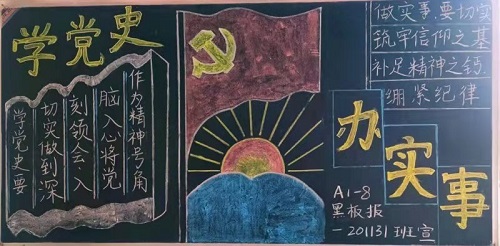 学党史
学党史要
切实做到深
刻领会、入
脑入心将党
作为精神号角
做实事、要切实
筑牢信仰之基
补足精神之钙
绷紧纪律
办实事
A1-8
黑板报
-201131 班宣